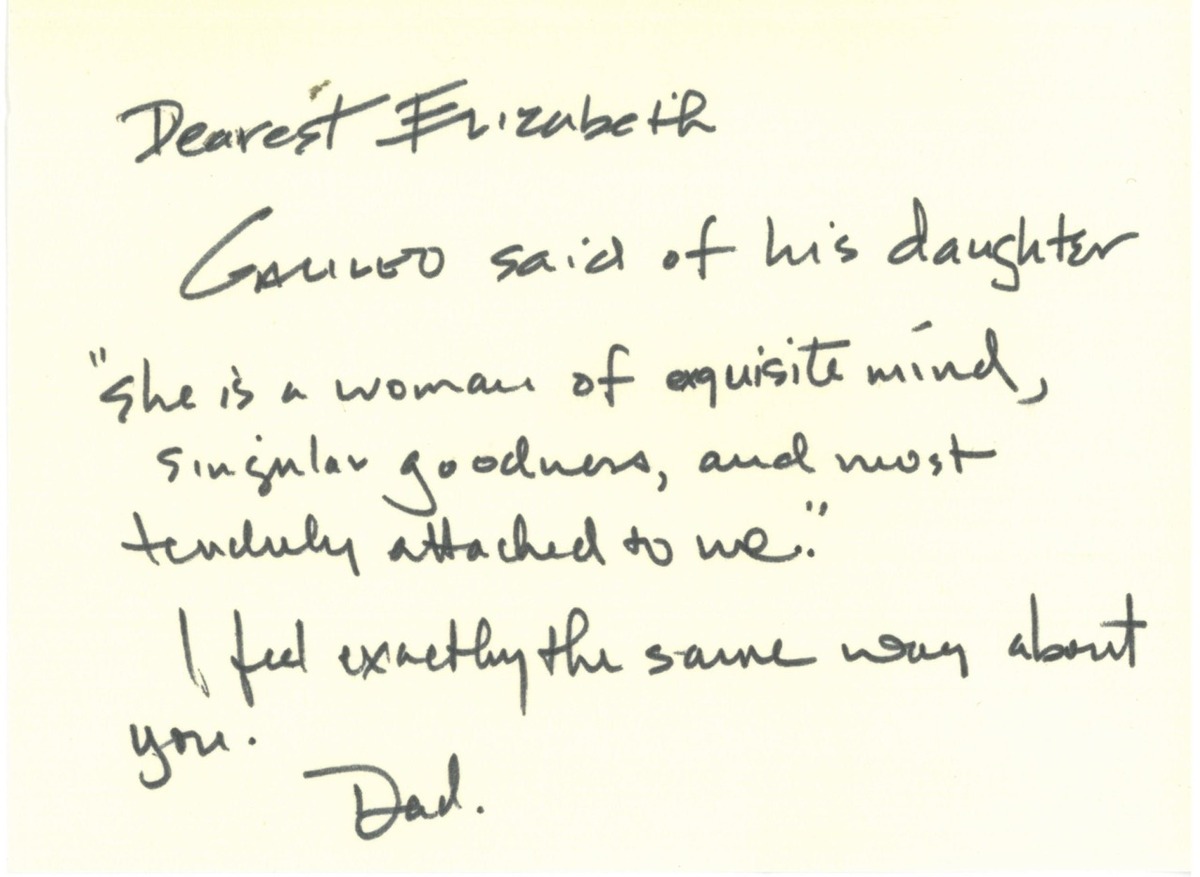 Dearest Elizabeth
GALILEO said of his daughter
"she is a woman of exquisite mind,
singular goodness, and most
tenderly attached to me."
I feel exactly the same way about
you.
Dad.